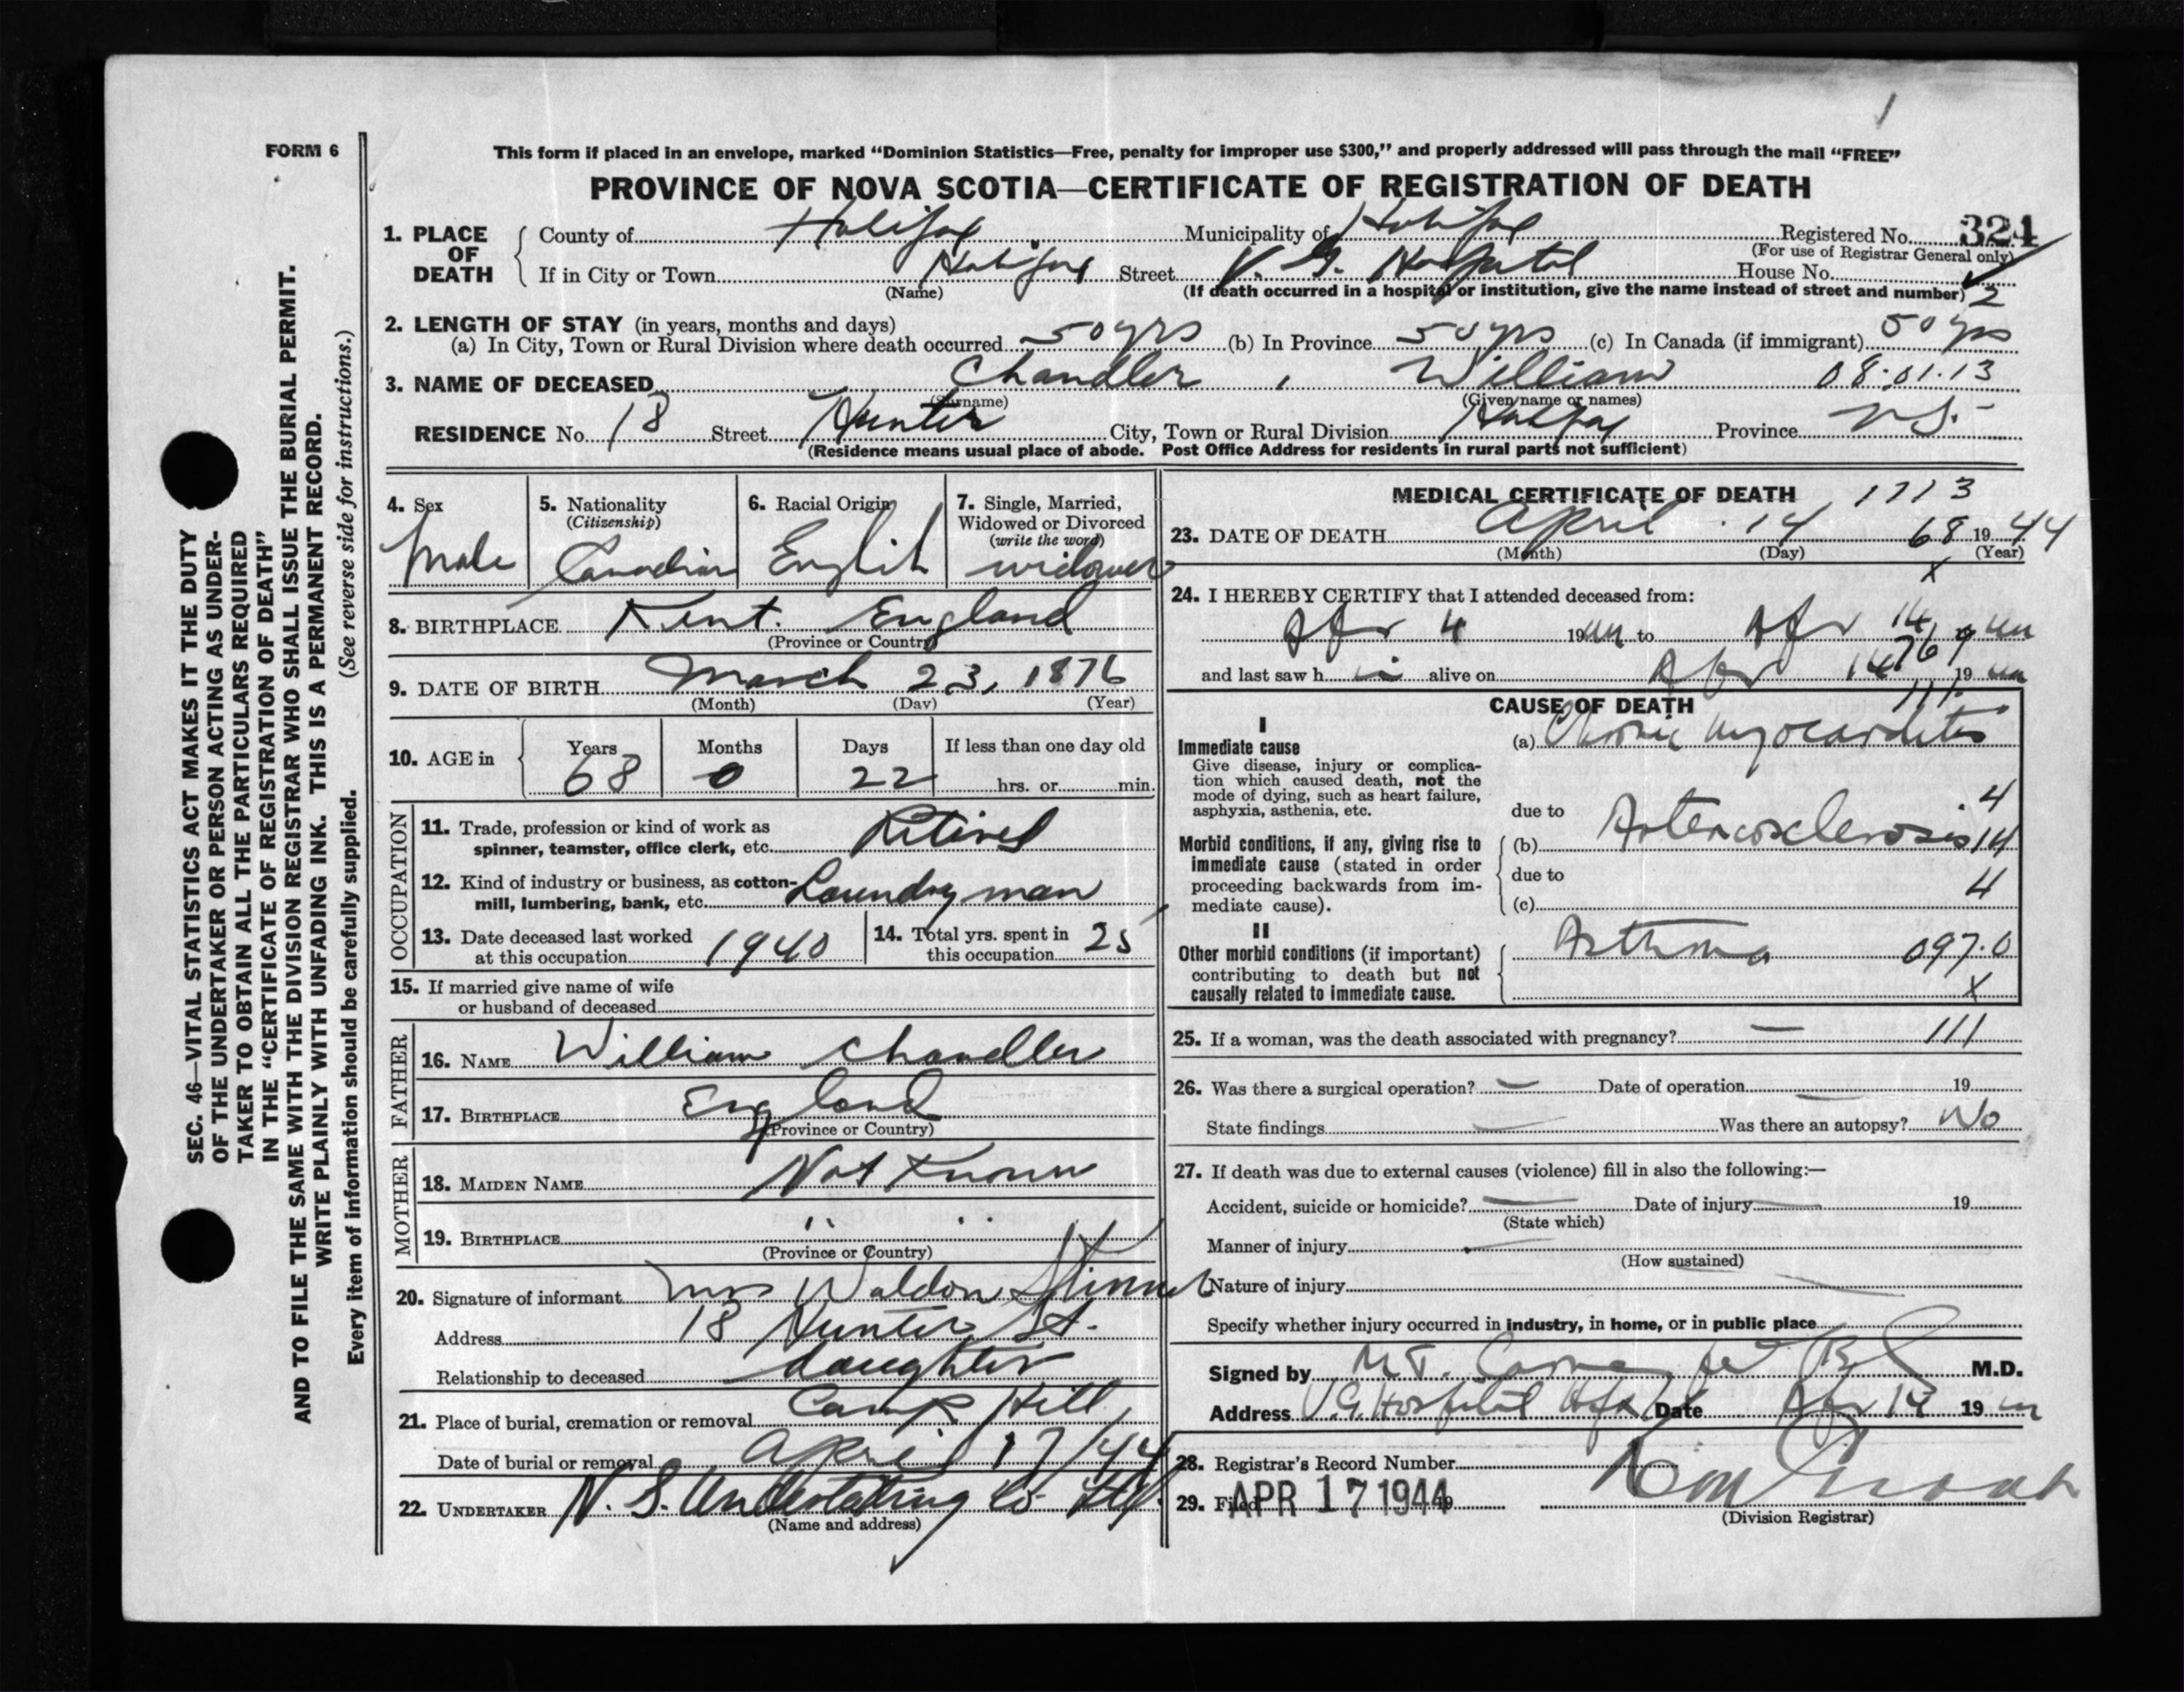 FORM 6
This form if placed in an envelope, marked “Dominion Statistics—Free, penalty for improper use $300,” and properly addressed will pass through the mail “FREE”
PROVINCE OF NOVA SCOTIA—CERTIFICATE OF REGISTRATION OF DEATH
1. PLACE OF DEATH
County of Halifax Municipality of Halifax Registered No. 324
(For use of Registrar General only)
If in City or Town Halifax Street V. G. Hospital House No.
(Name) (If death occurred in a hospital or institution, give the name instead of street and number) 2
2. LENGTH OF STAY (in years, months and days)
(a) In City, Town or Rural Division where death occurred 50 yrs (b) In Province 50 yrs (c) In Canada (if immigrant) 50 yrs
3. NAME OF DECEASED Chandler, William 08.01.13
(Surname) (Given name or names)
RESIDENCE No. 18 Street Hunter City, Town or Rural Division Halifax Province N.S.
(Residence means usual place of abode. Post Office Address for residents in rural parts not sufficient)
4. Sex
Male
5. Nationality
(Citizenship)
Canadian
6. Racial Origin
English
7. Single, Married,
Widowed or Divorced
(write the word)
widower
8. BIRTHPLACE Kent. England
(Province or Country)
9. DATE OF BIRTH March 23, 1876
(Month) (Day) (Year)
10. AGE in Years Months Days If less than one day old
68 0 22 hrs. or min.
OCCUPATION
11. Trade, profession or kind of work as
spinner, teamster, office clerk, etc. Retired
12. Kind of industry or business, as cotton-
mill, lumbering, bank, etc. Laundry man
13. Date deceased last worked
at this occupation 1940
14. Total yrs. spent in
this occupation 25
15. If married give name of wife
or husband of deceased
FATHER
16. NAME William Chandler
17. BIRTHPLACE England
(Province or Country)
MOTHER
18. MAIDEN NAME Not Known
19. BIRTHPLACE " "
(Province or Country)
20. Signature of informant Mrs Waldon
Address 18 Hunter St.
Relationship to deceased daughter
21. Place of burial, cremation or removal Camp Hill
Date of burial or removal April 17/44
22. UNDERTAKER N. S. Undertaking Co.
(Name and address)
MEDICAL CERTIFICATE OF DEATH 1713
23. DATE OF DEATH April 14 68 1944
(Month) (Day) (Year)
x
24. I HEREBY CERTIFY that I attended deceased from:
Apr 4 1944 to Apr 14 1944
and last saw h im alive on Apr 14 1944
CAUSE OF DEATH 111
I
Immediate cause
Give disease, injury or complica-
tion which caused death, not the
mode of dying, such as heart failure,
asphyxia, asthenia, etc.
(a) Chronic myocarditis
due to 4
Morbid conditions, if any, giving rise to
immediate cause (stated in order
proceeding backwards from im-
mediate cause).
(b) Arteriosclerosis 14
due to 4
(c)
II
Other morbid conditions (if important)
contributing to death but not
causally related to immediate cause.
Asthma 097.0
X
25. If a woman, was the death associated with pregnancy? — 111
26. Was there a surgical operation? — Date of operation — 19
State findings — Was there an autopsy? No
27. If death was due to external causes (violence) fill in also the following:—
Accident, suicide or homicide? — Date of injury — 19
(State which)
Manner of injury —
(How sustained)
Nature of injury —
Specify whether injury occurred in industry, in home, or in public place
Signed by M.D.
Address V.G. Hospital Hfx Date Apr 14 1944
28. Registrar's Record Number
29. Filed APR 17 1944 19
(Division Registrar)
SEC. 46—VITAL STATISTICS ACT MAKES IT THE DUTY
OF THE UNDERTAKER OR PERSON ACTING AS UNDER-
TAKER TO OBTAIN ALL THE PARTICULARS REQUIRED
IN THE “CERTIFICATE OF REGISTRATION OF DEATH”
AND TO FILE THE SAME WITH THE DIVISION REGISTRAR WHO SHALL ISSUE THE BURIAL PERMIT.
WRITE PLAINLY WITH UNFADING INK. THIS IS A PERMANENT RECORD.
Every item of information should be carefully supplied. (See reverse side for instructions.)